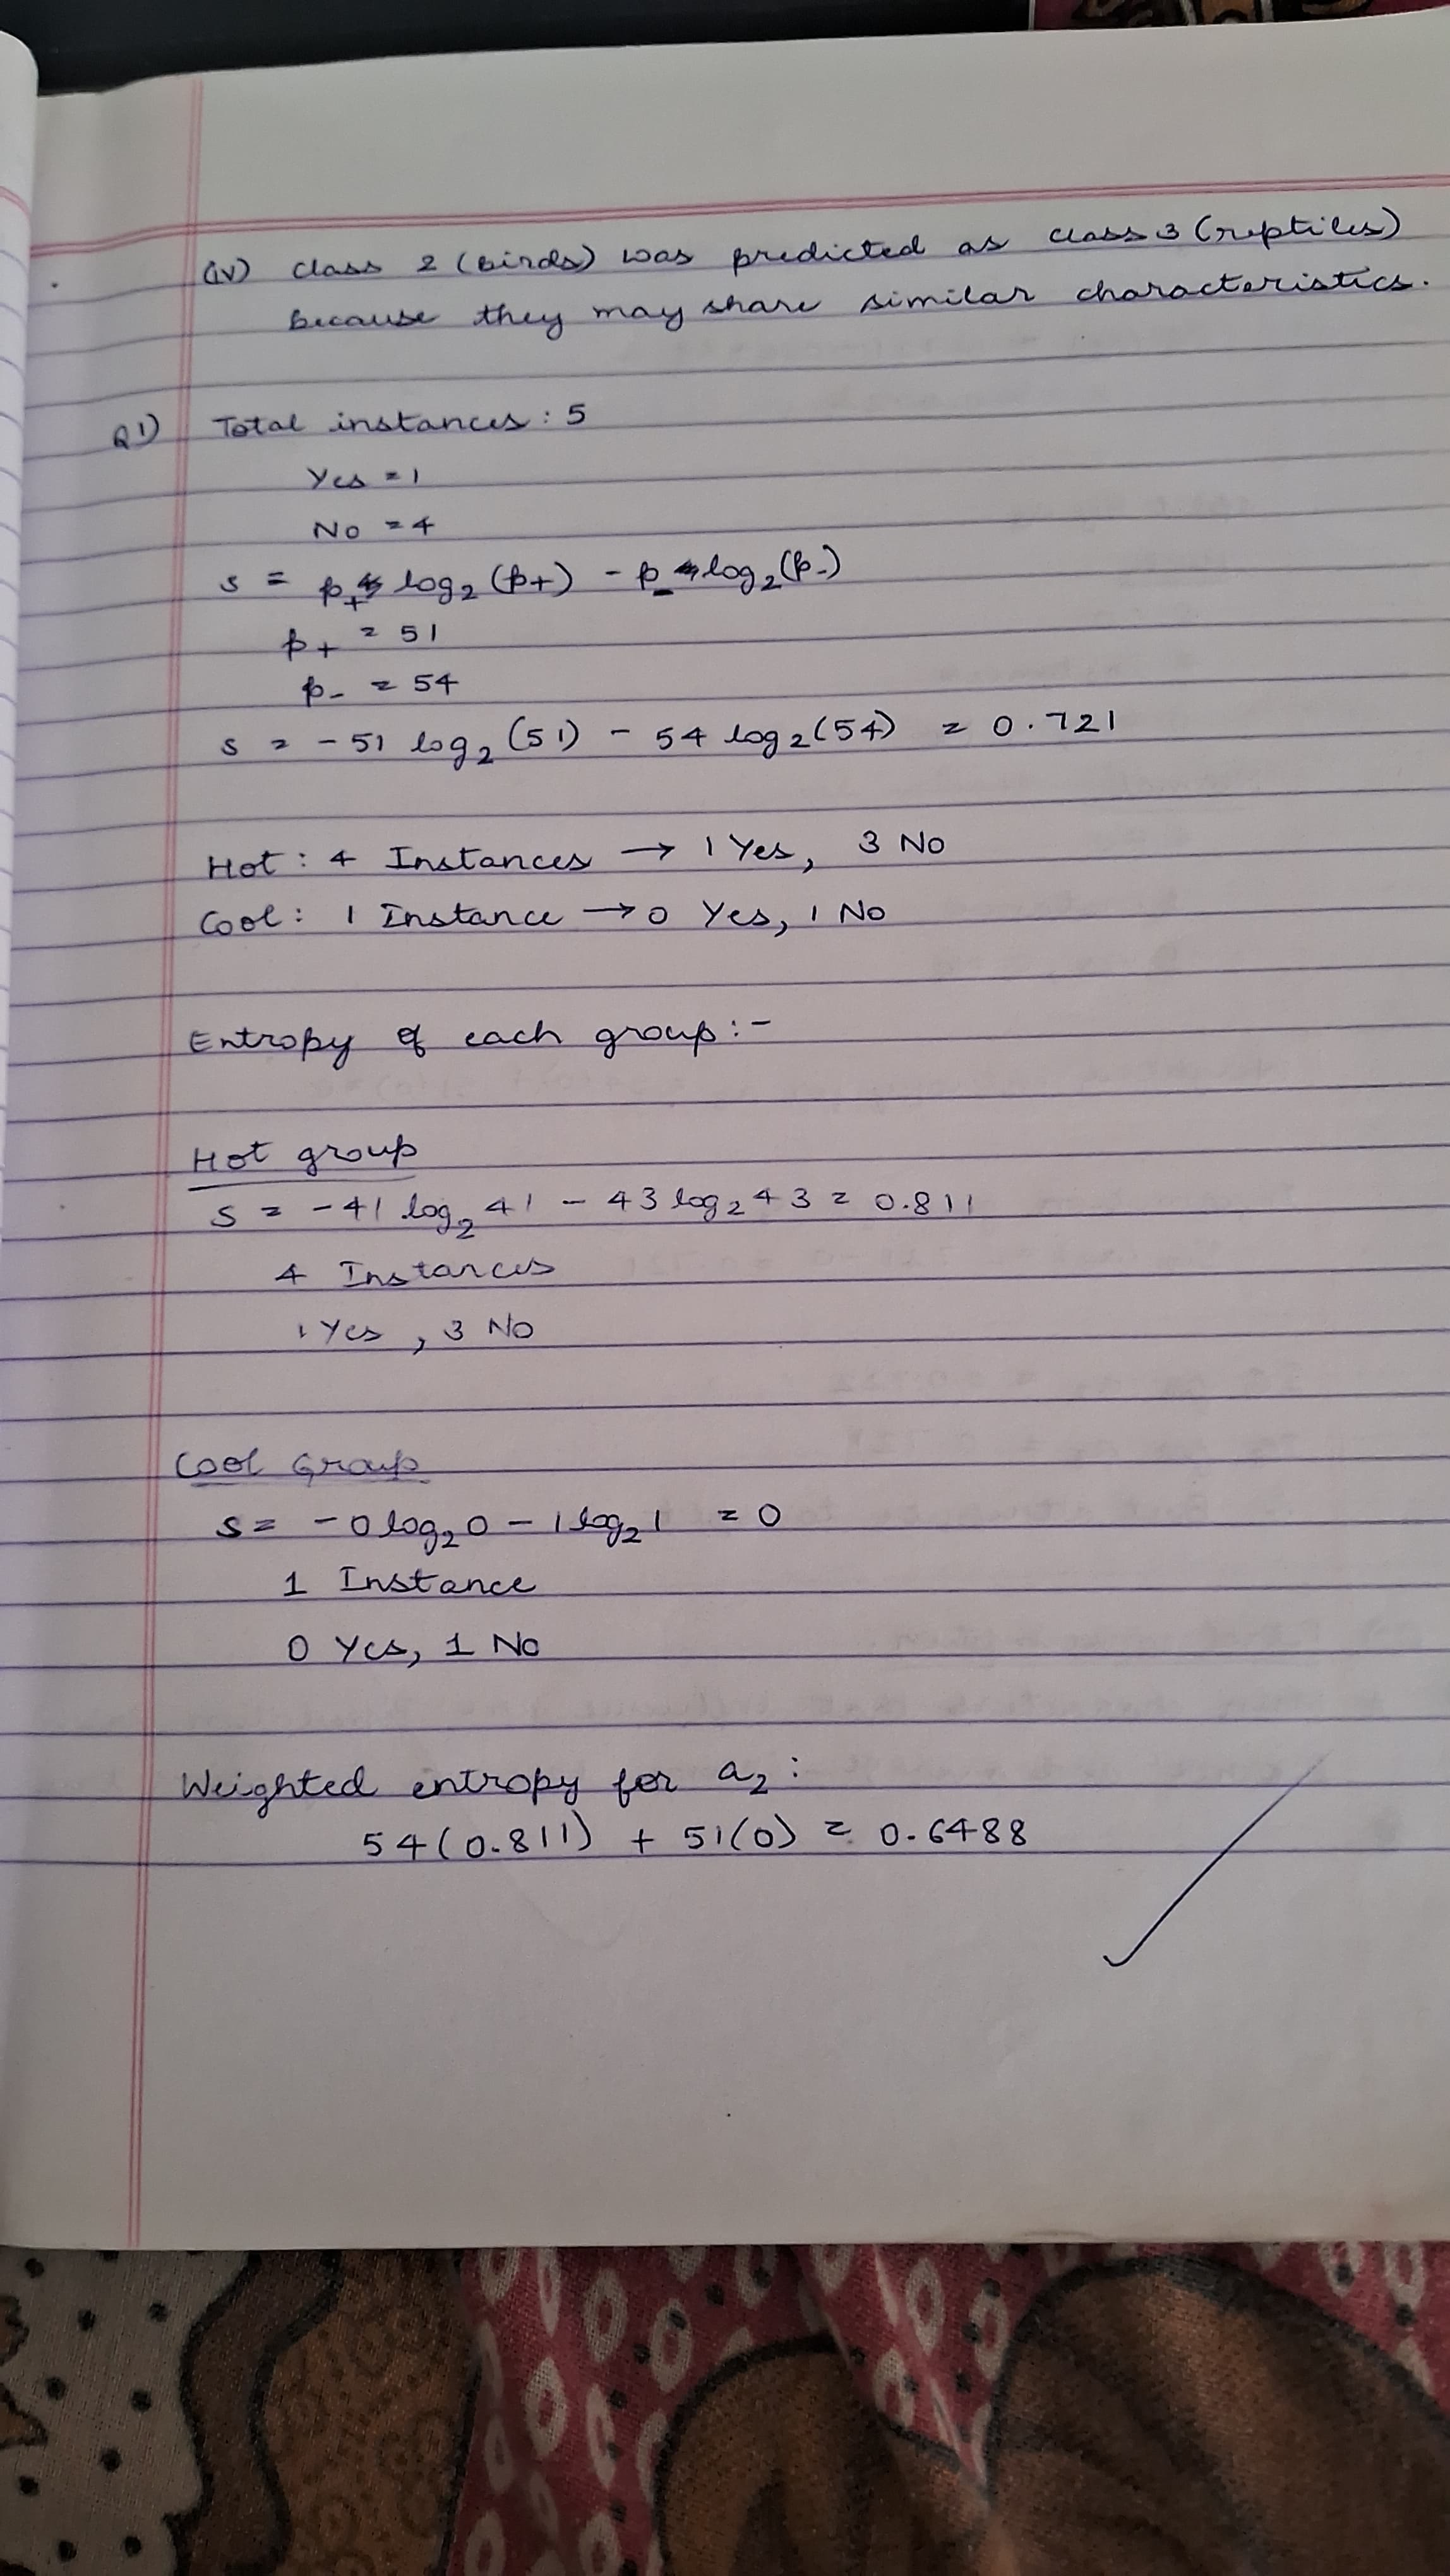 (iv) class 2 (birds) was predicted as class 3 (reptiles)
because they may share similar characteristics.
Q1) Total instances: 5
Yes = 1
No = 4
s = p+ log2 (p+) - p- log2 (p-)
p+ = 51
p- = 54
s = - 51 log2 (51) - 54 log2 (54) = 0.721
Hot: 4 Instances → 1 Yes, 3 No
Cool: 1 Instance → 0 Yes, 1 No
Entropy of each group:-
Hot group
s = - 41 log2 41 - 43 log2 43 = 0.811
4 Instances
1 Yes, 3 No
Cool Group
s = - 0 log2 0 - 1 log2 1 = 0
1 Instance
0 Yes, 1 No
Weighted entropy for a2:
54(0.811) + 51(0) = 0.6488